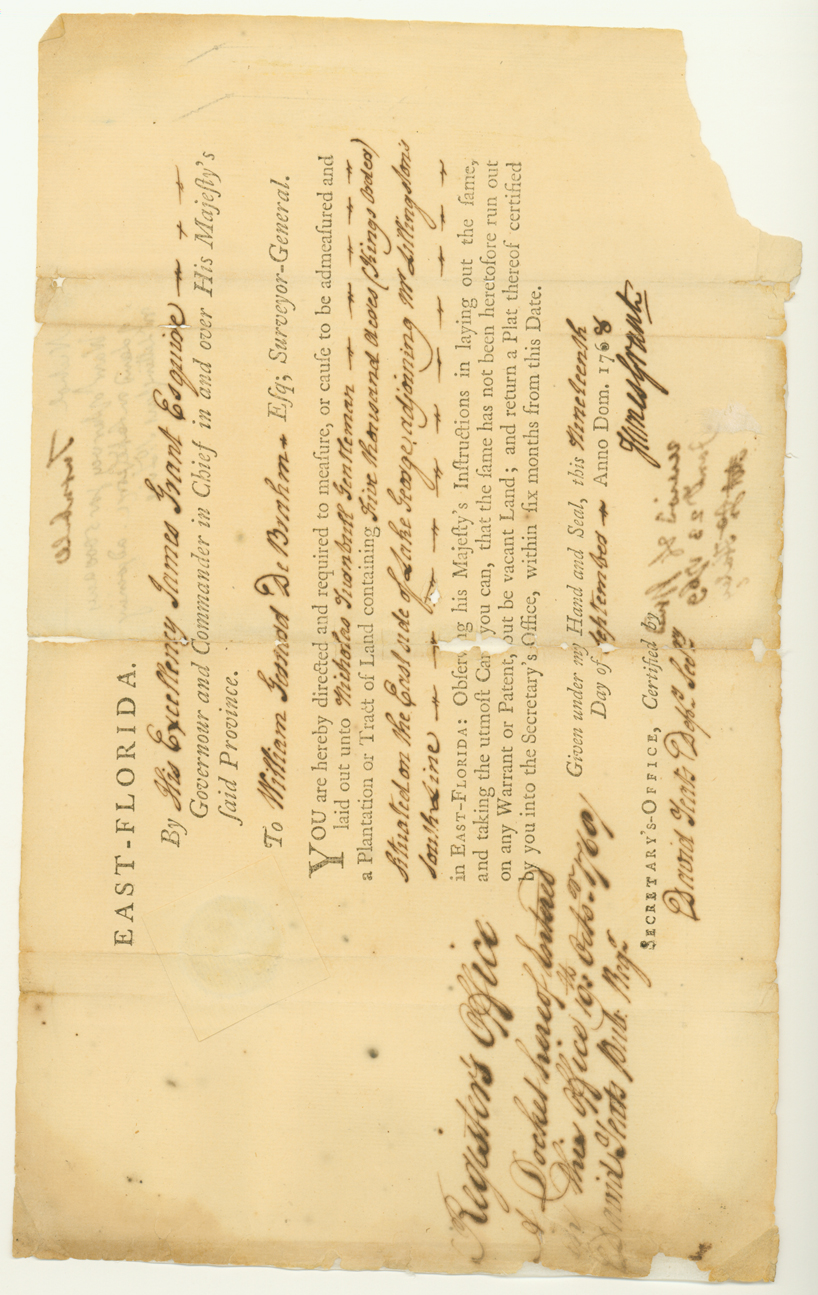 EAST-FLORIDA.
By His Excellency James Grant Esquire
Governour and Commander in Chief in and over His Majeſty's
ſaid Province.
To William Gerrard De Brahm Eſq; Surveyor-General.
YOU are hereby directed and required to meaſure, or cauſe to be admeaſured and
laid out unto Nicholas Turnbull Gentleman
a Plantation or Tract of Land containing Five thousand Acres (Kings Order)
Situated on the East side of Lake George, adjoining Mr
South Line
in EAST-FLORIDA: Obſerving his Majeſty's Inſtructions in laying out the ſame,
and taking the utmoſt Care you can, that the ſame has not been heretofore run out
on any Warrant or Patent, but be vacant Land; and return a Plat thereof certified
by you into the Secretary's Office, within ſix months from this Date.
Given under my Hand and Seal, this Nineteenth
Day of September Anno Dom. 1768
James Grant
SECRETARY'S-OFFICE, Certified by
David Yeats Depy. Secry.
Register's Office
A Docket hereof Entered
in this Office 10th Octor. 1769
David Yeats Pub. Regr.